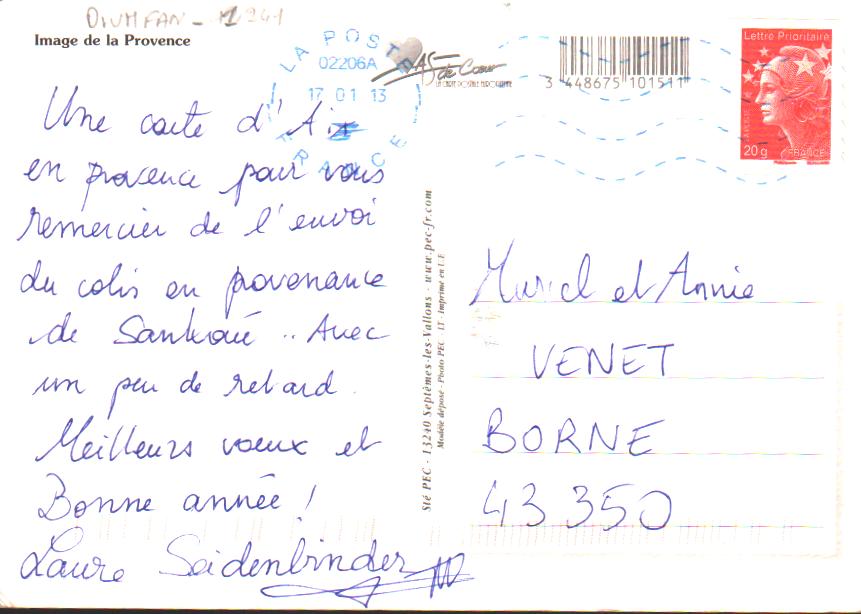 DIVMFAN - 1 241
Image de la Provence
LA POSTE
02206A
17 01 13
FRANCE
As de Cœur
LA CARTE POSTALE EUROPEENNE
3 448675 101511
Lettre Prioritaire
LA POSTE
20 g FRANCE
Une carte d'Aix
en provence pour vous
remercier de l'envoi
du colis en provenance
de Sankoué .. Avec
un peu de retard.
Meilleurs vœux et
Bonne année !
Laure Seidenbinder
Sté PEC - 13240 Septèmes-les-Vallons - www.pec-fr.com
Modèle déposé - Photo PEC - IT - Imprimé en UE
Muriel et Annie
VENET
BORNE
43 350